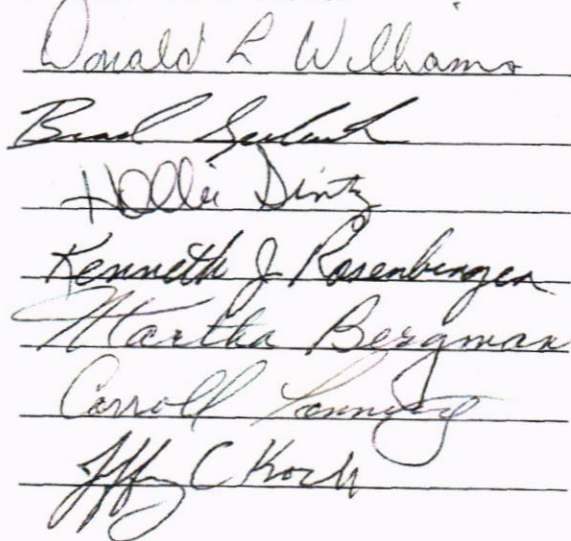 Donald L Williams
Brad
Hollie Dintz
Kenneth J Rosenbergen
Martha Bergman
Carroll
Jeffrey C Koch